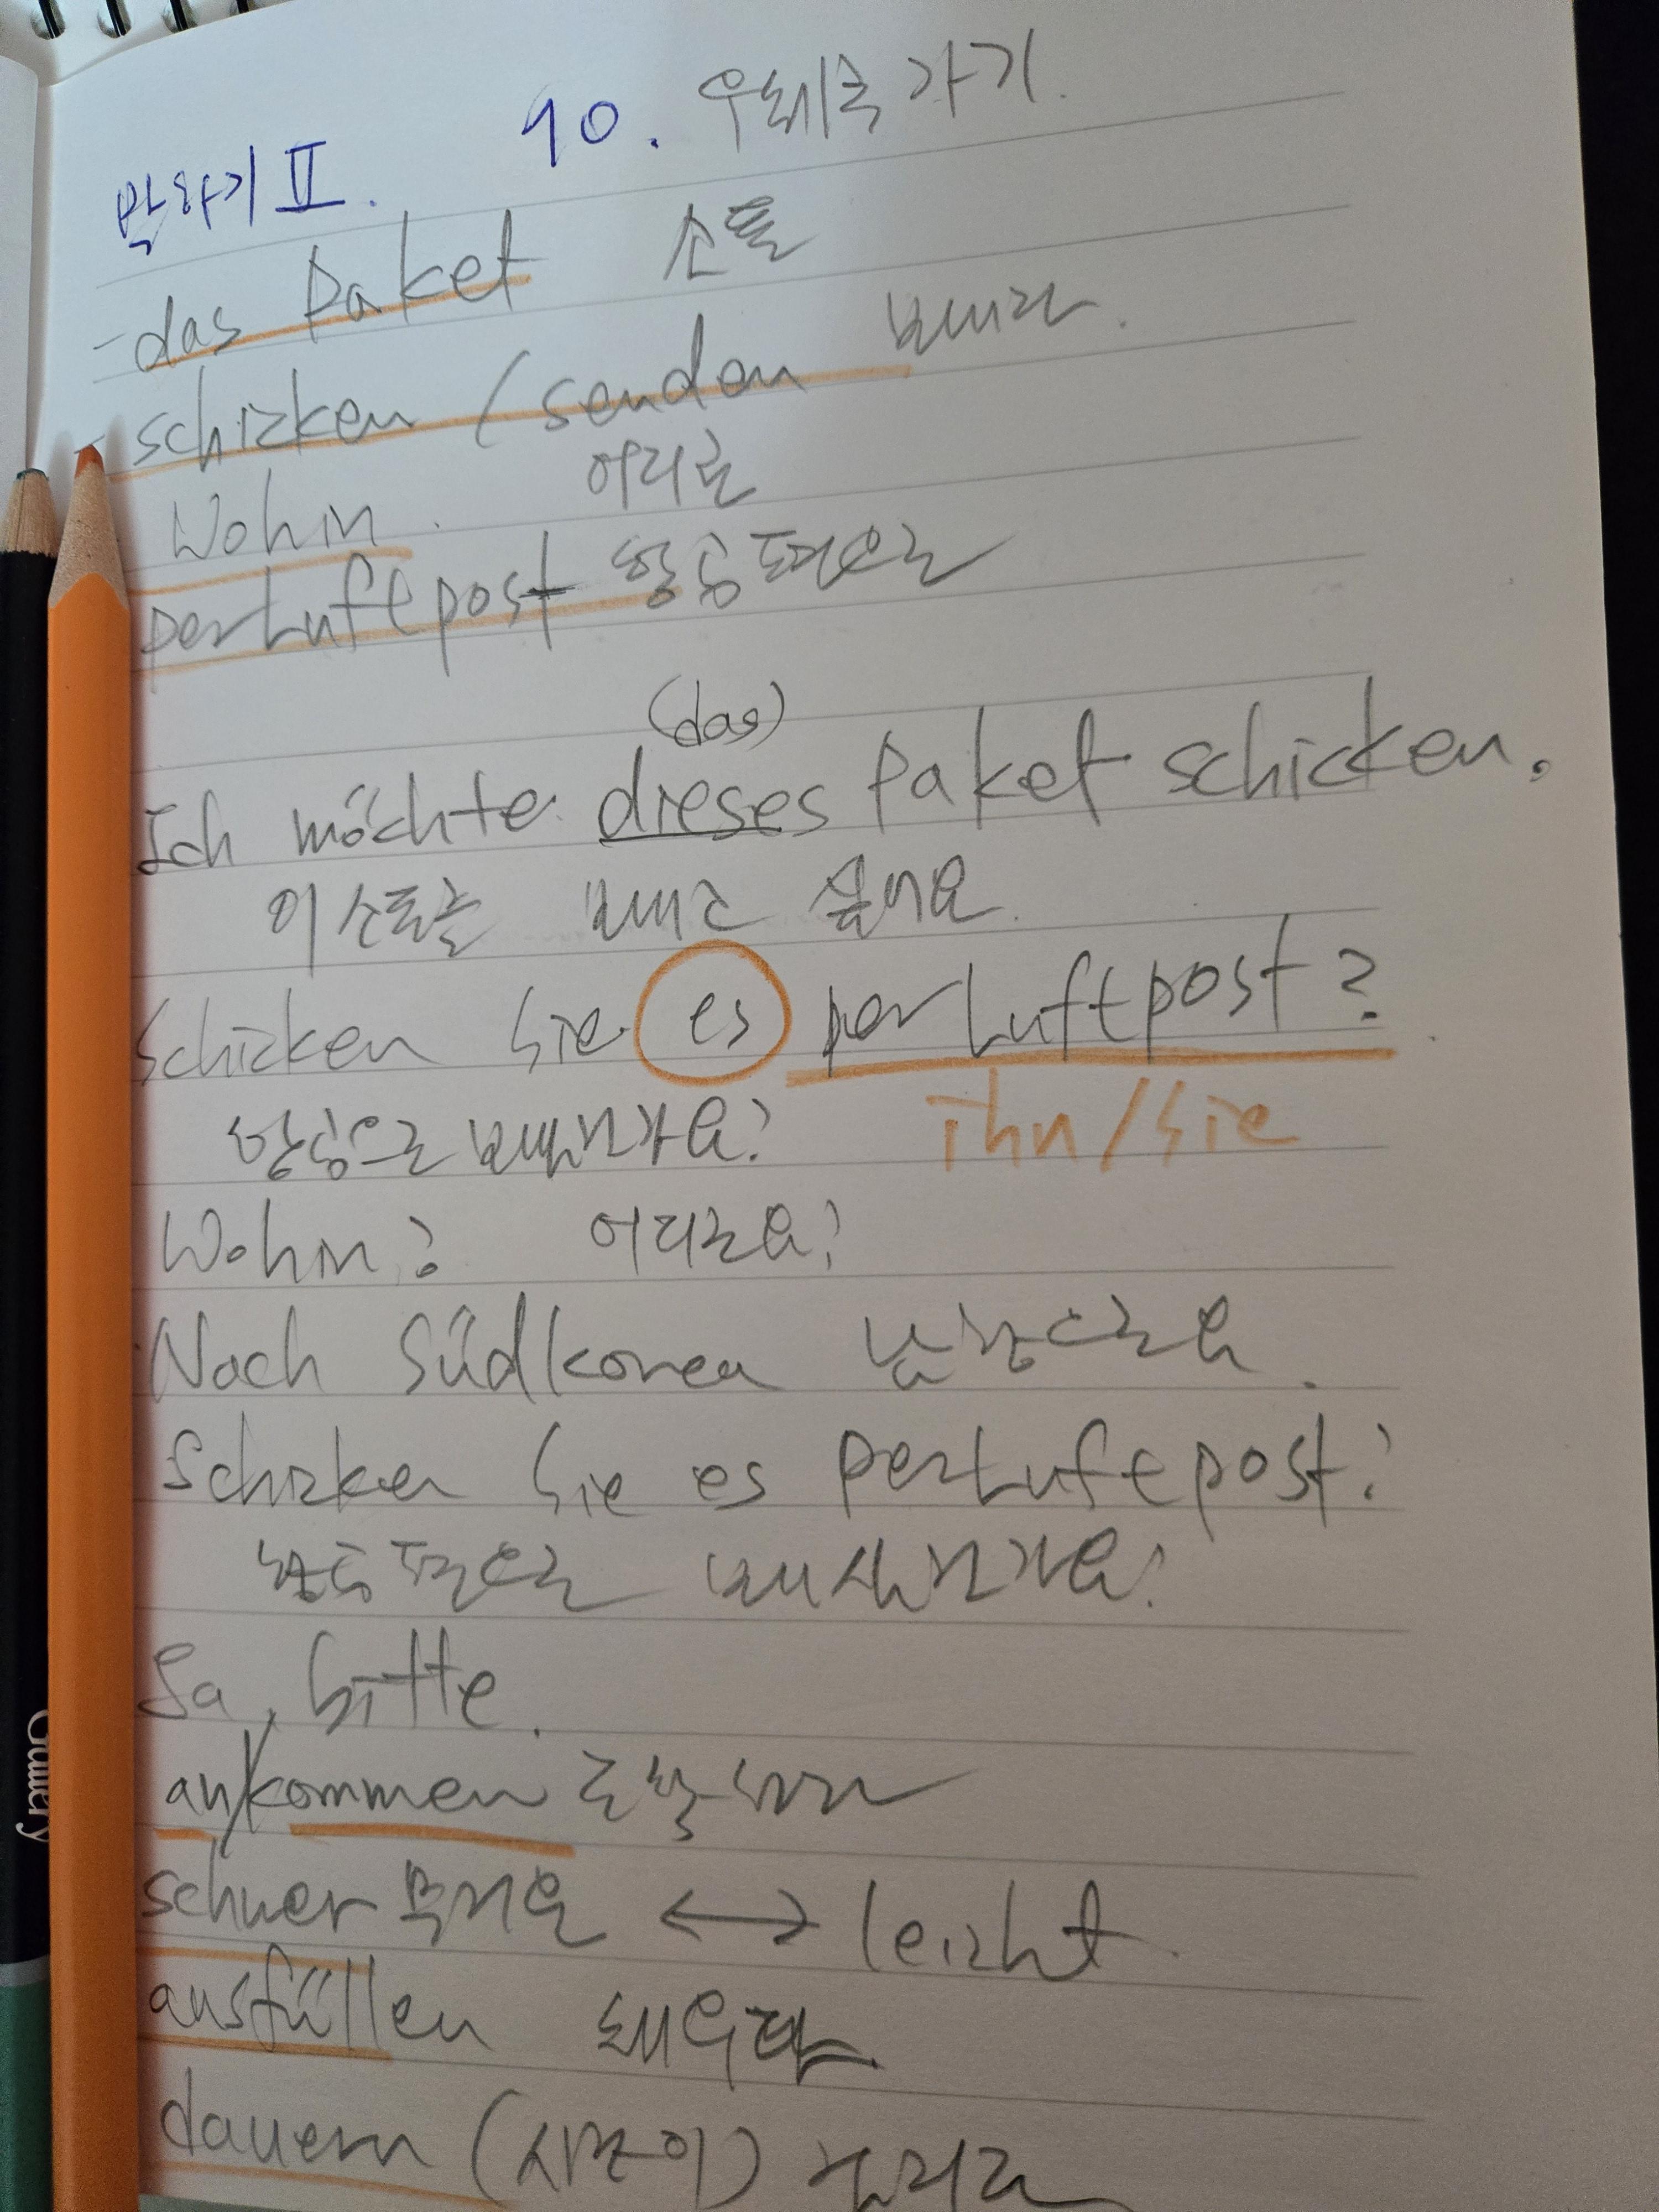 말하기 II.
10. 우체국 가기.
- das Paket 소포
- schicken / senden 보내다.
Wohin. 어디로
per Luftpost 항공편으로
(das)
Ich möchte dieses Paket schicken.
이 소포를 보내고 싶어요.
Schicken Sie es per Luftpost?
항공으로 보낼건가요? ihn/sie
Wohin? 어디로요?
Nach Südkorea 남한으로요.
Schicken Sie es per Luftpost?
항공편으로 보내시는가요?
Ja, bitte.
an/kommen 도착하다
schwer 무거운 ↔ leicht.
ausfüllen 채우다
dauern (시간이) 걸리다
Gallery